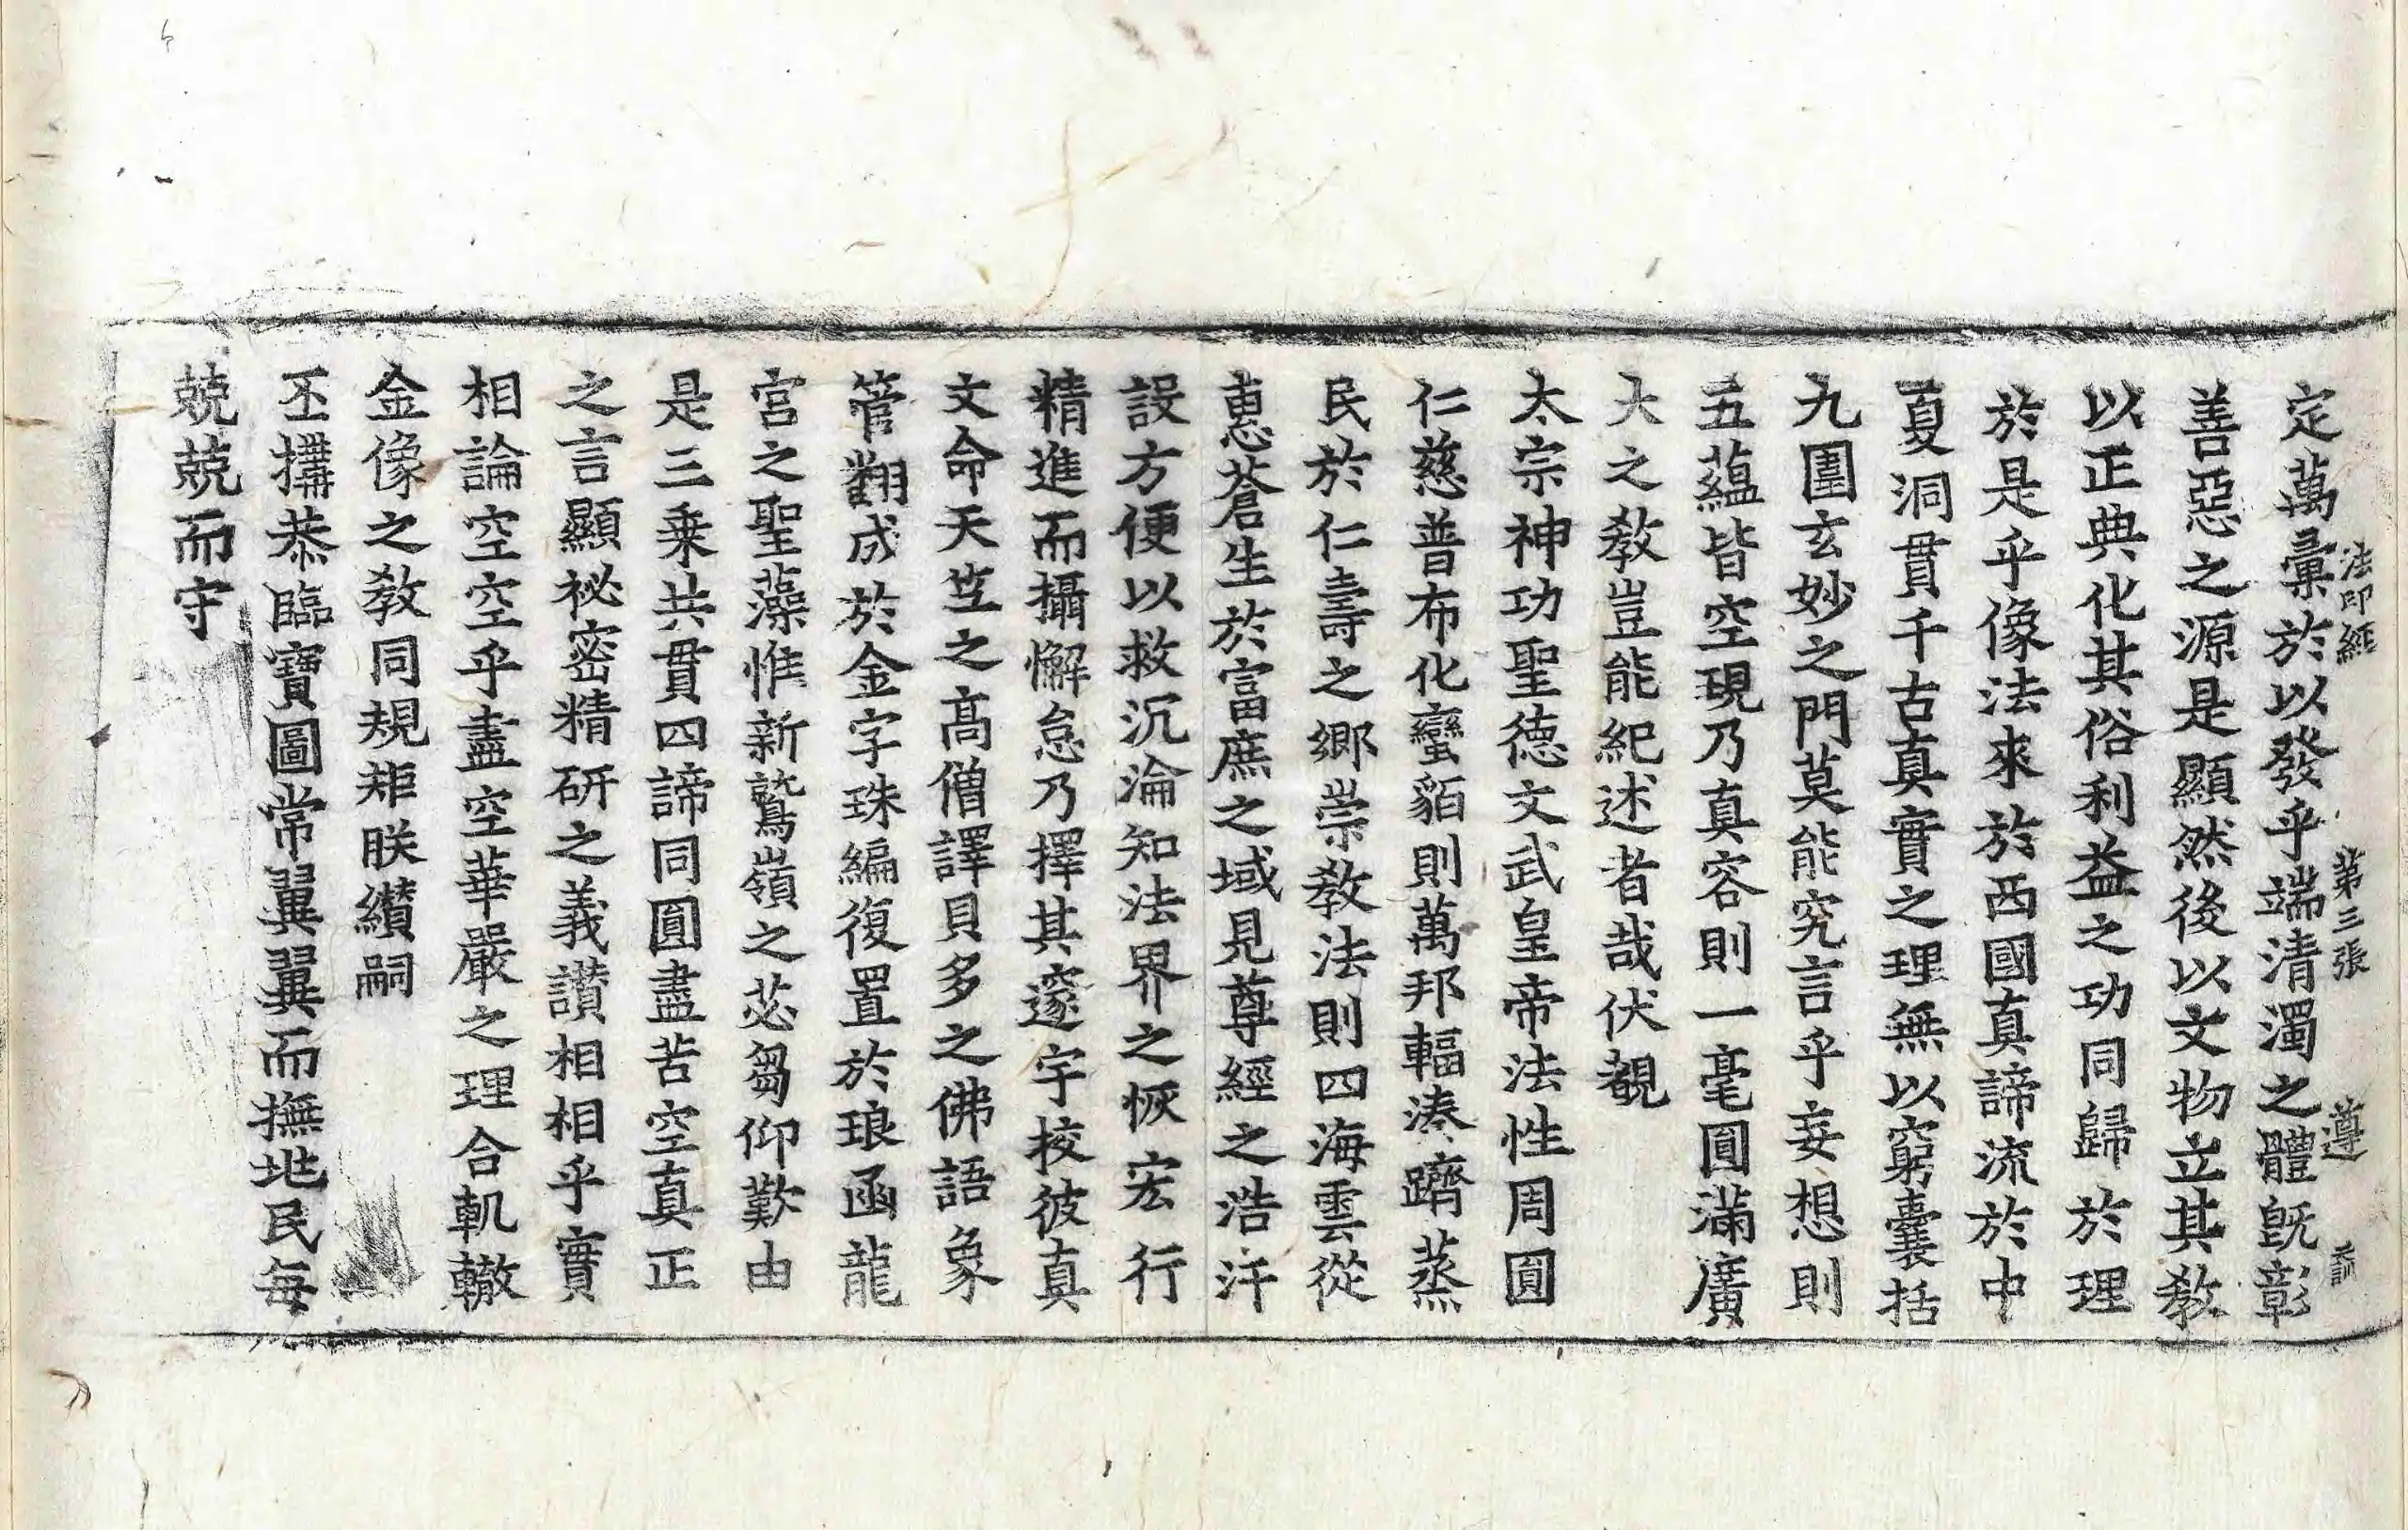 法印經 第三張 遵
定萬彙於以發乎端清濁之體旣彰
善惡之源是顯然後以文物立其教
以正典化其俗利益之功同歸於理
於是乎像法來於西國真諦流於中
夏洞貫千古真實之理無以窮囊括
九圍玄妙之門莫能究言乎妄想則
五藴皆空現乃真容則一毫圓滿廣
大之教豈能紀述者哉伏覩
太宗神功聖德文武皇帝法性周圓
仁慈普布化蠻貊則萬邦輻湊躋蒸
民於仁壽之鄉崇教法則四海雲從
惠蒼生於富庶之域見尊經之浩汗
設方便以救沉淪知法界之恢宏行
精進而攝懈怠乃擇其邃宇校彼真
文命天笁之高僧譯貝多之佛語象
管翻成於金字珠編復置於琅函龍
宮之聖藻惟新鷲嶺之苾芻仰歎由
是三乗共貫四諦同圓盡苦空真正
之言顯祕密精研之義讃相相乎實
相論空空乎盡空華嚴之理合軌轍
金像之教同規矩朕纘嗣
丕搆恭臨寶圖常翼翼而撫地民每
兢兢而守